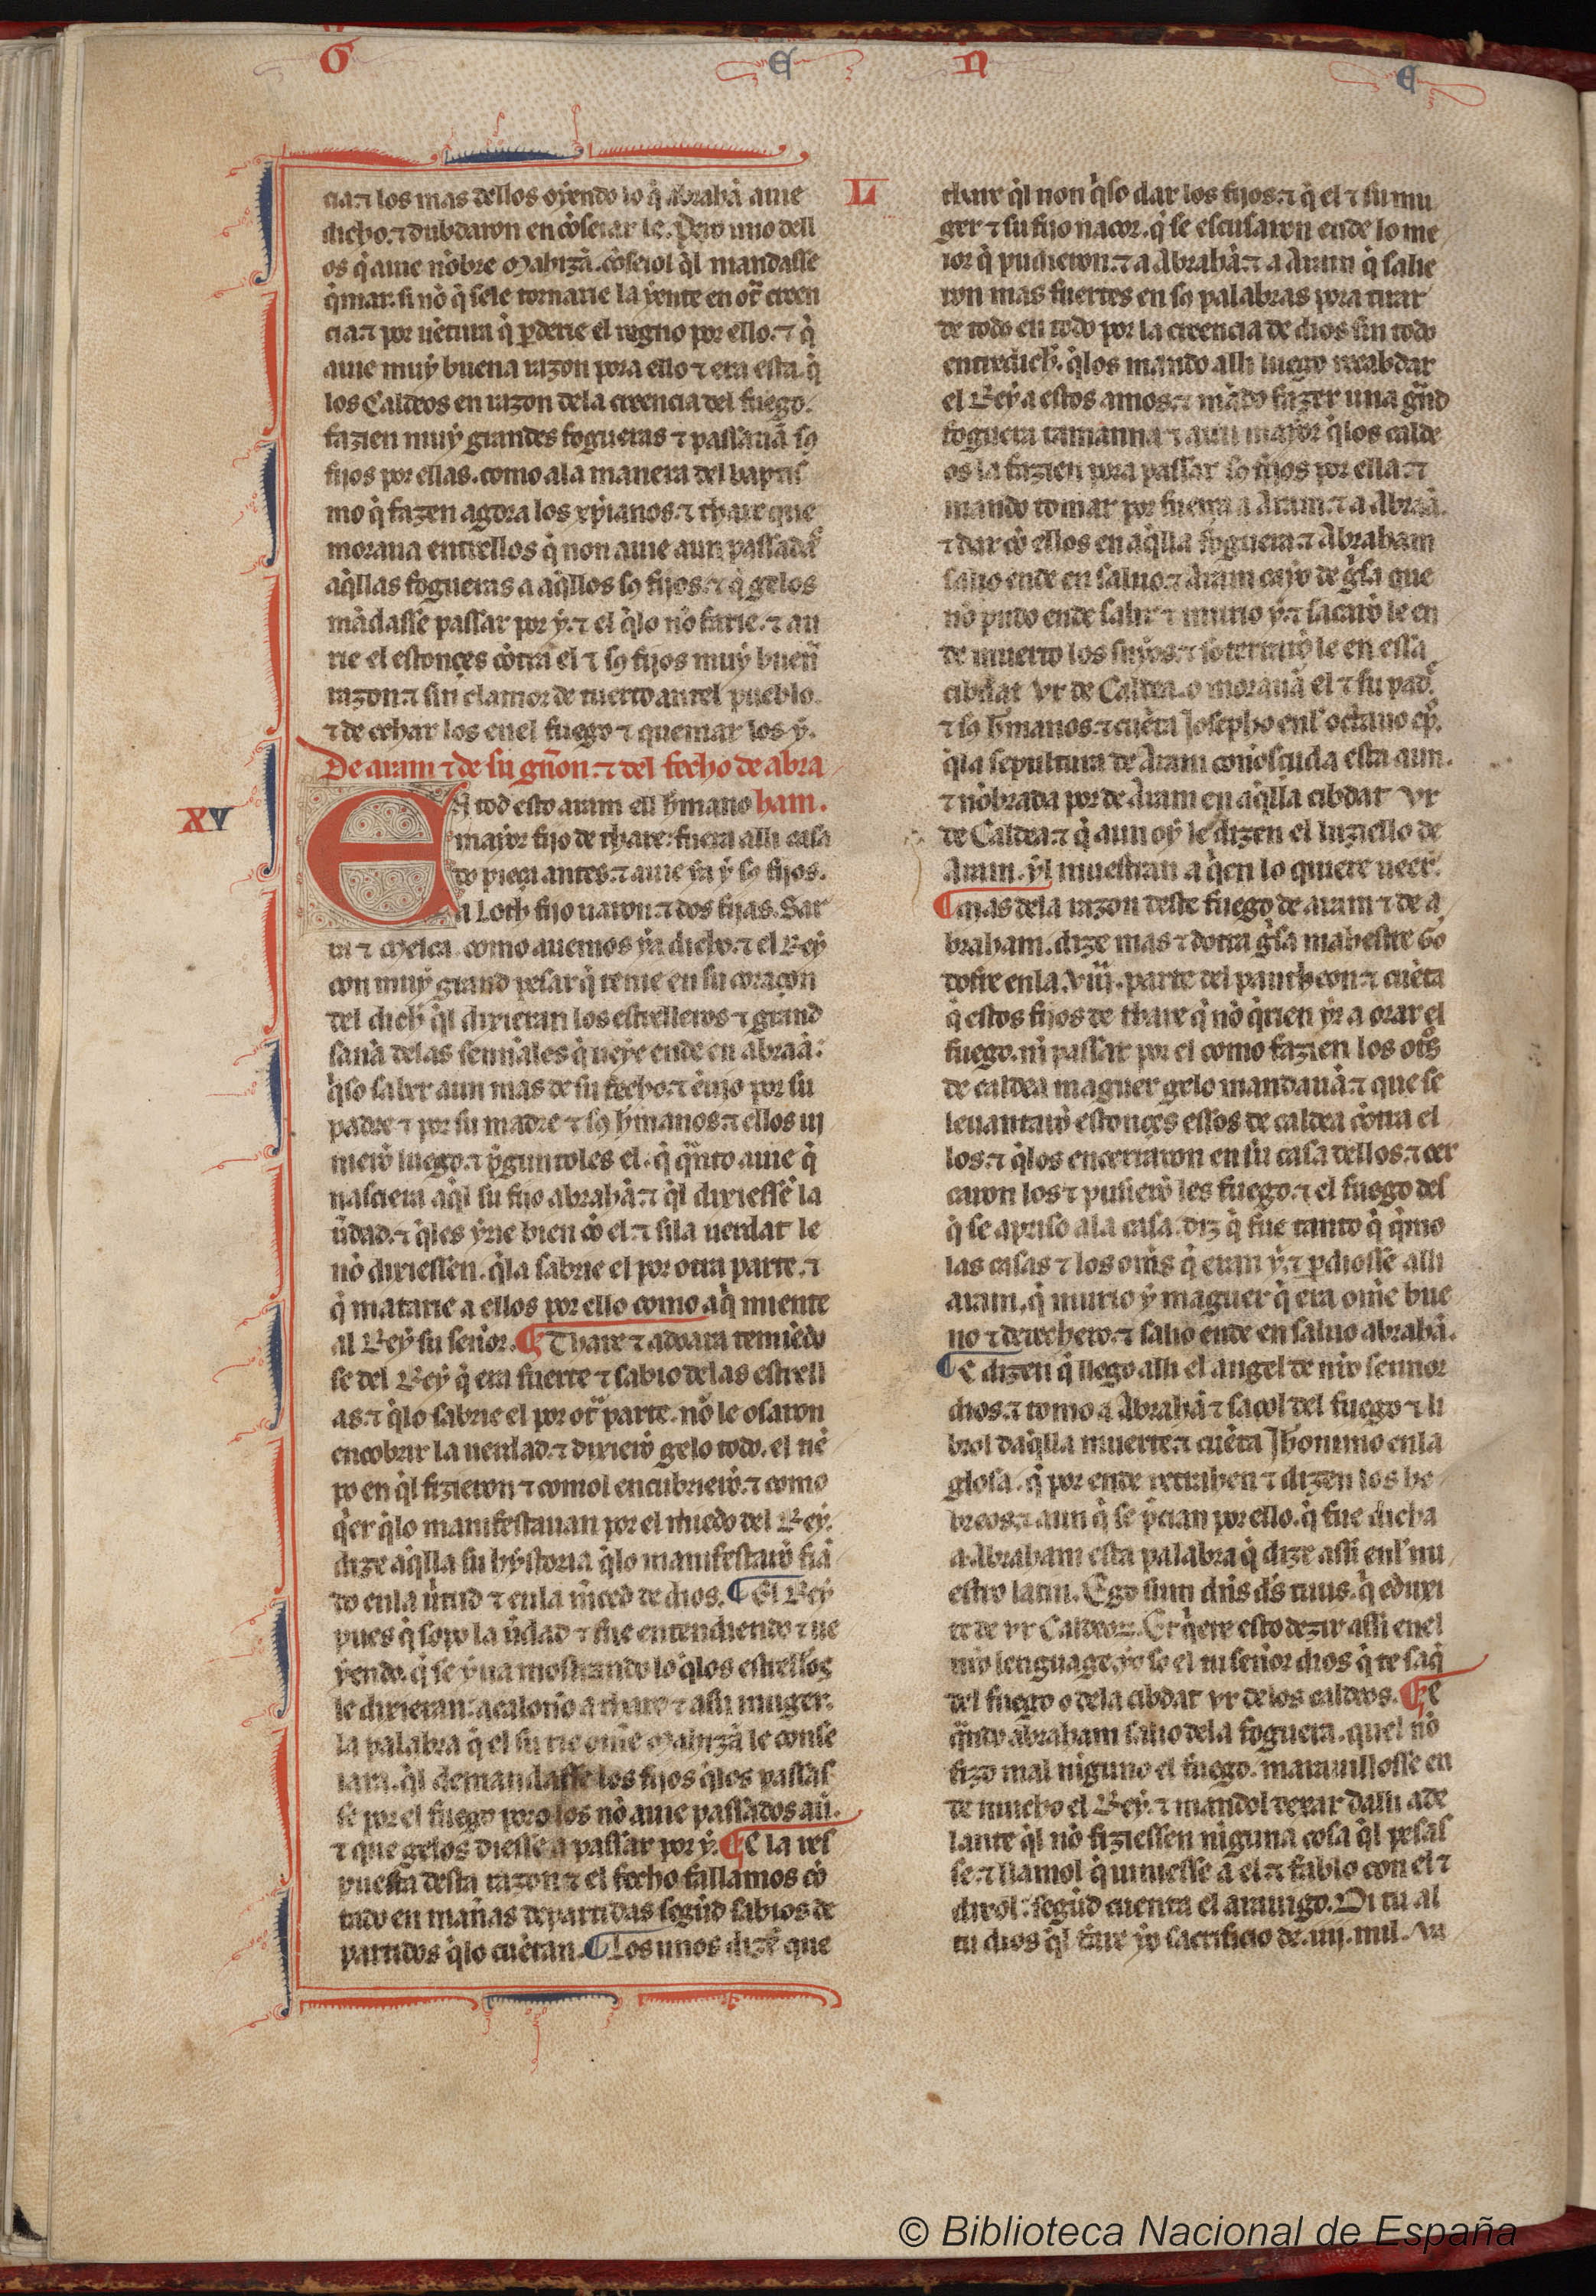 G E L N E
cia. ⁊ los mas dellos oyendo lo q̃ abrahã auie
dicho. ⁊ dubdaron en cõseiar le. Pero uno dell
os q̃ auie nõbre Mahizã. cõseiol q̃l mandasse
q̃mar. si nõ q̃ sele tornarie la yente en otͣ creen
cia. ⁊ por uẽtura q̃ ꝑderie el regno por ello. ⁊ q̃
auie muy buena razon pora ello ⁊ era esta. q̃
los Caldeos en razon dela creencia del fuego.
fazien muy grandes fogueras ⁊ passauã sꝯ
fijos por ellas. como ala manera del baptis
mo q̃ fazen agora los xp̃ianos. ⁊ thare que
moraua entrellos q̃ non auie aun passadaˢ
aq̃llas fogueras a aq̃llos sꝯ fijos. ⁊ q̃ gelos
mãdasse passar por y. ⁊ el q̃lo nõ farie. ⁊ au
rie el estonçes cõtra el ⁊ sꝯ fijos muy buenͣ
razon. ⁊ sin clamor de tuerto antel pueblo.
⁊ de echar los enel fuego ⁊ quemar los y.
De aram ⁊ de su gñon. ⁊ del fecho de abra
XV
EN tod esto aram ell h̃mano ham.
mayor fijo de thare: fuera alli casa
do pieça antes. ⁊ auie ya y sꝯ fijos.
a Loth fijo uaron. ⁊ dos fijas. Sar
ra ⁊ Melca. como auemos ya dicho. ⁊ el Rey
con muy grand pesar q̃ tenie en su coraçon
del dich̃ q̃l dixieran los estrelleros ⁊ grand
sanã delas sennales q̃ ueye ende en abraã:
q̃so saber aun mas de su fecho. ⁊ ẽuio por su
padre ⁊ por su madre ⁊ sꝯ h̃manos. ⁊ ellos ui
nierõ luego. ⁊ p̃guntoles el. q̃ q̃nto auie q̃
nasciera aq̃l su fijo abrahã. ⁊ q̃l dixiessẽ la
ũdad. ⁊ q̃les yrie bien cõ el. ⁊ sila uerdat le
nõ dixiessen. q̃la sabrie el por otra parte. ⁊
q̃ matarie a ellos por ello como aq̃ miente
al Rey su señor. ¶ Thare ⁊ adoara temiẽdo
se del Rey q̃ era fuerte ⁊ sabio delas estrell
as. ⁊ q̃lo sabrie el por otͣ parte. nõ le osaron
encobrir la uerdad. ⁊ dixierõ gelo todo. el tiẽ
po en q̃l fizieron ⁊ comol encubrierõ. ⁊ como
q̃er q̃lo manifestauan por el miedo del Rey.
dize aq̃lla su hystoria q̃lo manifestarõ fiã
do enla ũtud ⁊ enla m̃ced de dios. ¶ El Rey
pues q̃ sopo la ũdad ⁊ fue entendiendo ⁊ ue
yendo. q̃ se yua mostrando lo q̃los estrellos
le dixieran: acalonno a thare ⁊ a su muger.
la palabra q̃ el su ric omẽ Mahizã le conse
iara. q̃l demandasse los fijos q̃los passas
se por el fuego poro los nõ auie passados aũ.
⁊ que gelos diesse a passar por y. ¶ E la res
puesta desta razon ⁊ el fecho fallamos cõ
tado en mañas departidas segũd sabios de
partidos q̃lo cuẽtan. ¶ Los unos dizẽ que
thare q̃l non q̃so dar los fijos. ⁊ q̃ el ⁊ su mu
ger ⁊ su fijo nacor. q̃ se escusaron ende lo me
ior q̃ pudieron. ⁊ a Abrahã. ⁊ a Aram q̃ salie
ron mas fuertes en sꝯ palabras pora tirar
de todo en todo por la creencia de dios sin todo
entredich̃. q̃los mando alli luego recabdar
el Rey a estos amos. ⁊ mãdo fazer una gͣnd
foguera tamanna ⁊ aun mayor q̃los calde
os la fazien pora passar sꝯ fijos por ella. ⁊
mando tomar por fuerça a Aram. ⁊ a Abraã.
⁊ dar cõ ellos en aq̃lla foguera. ⁊ Abraham
salio ende en saluo. ⁊ Aram cayo de g̃sa que
nõ pudo ende salir ⁊ murio y. ⁊ sacarõ le en
de muerto los suyos. ⁊ soterrarõ le en essa
cibdat Vr de Caldea. o morauã el ⁊ su padͤ.
⁊ sꝯ h̃manos. ⁊ cuẽta Josepho enl octauo cpͦ.
q̃la sepultura de Aram connosçuda esta aun.
⁊ nõbrada por de Aram en aq̃lla cibdat Vr
de Caldea. ⁊ q̃ aun oy le dizen el luziello de
Aram. ⁊l muestran a q̃en lo quiere ueer.
¶ Mas dela razon deste fuego de aram ⁊ de a
braham. dize mas ⁊ dotra g̃sa mahestre Go
dofre enla .viiiͣ. parte del pantheon. ⁊ cuẽta
q̃ estos fijos de thare q̃ nõ q̃rien yr a orar el
fuego. ni passar por el como fazien los otͦs
de caldea maguer gelo mandauã. ⁊ que se
leuantarõ estonçes essos de caldea cõtra el
los. ⁊ q̃los encerraron en su casa dellos. ⁊ cer
caron los ⁊ pusierõ les fuego. ⁊ el fuego des
q̃ se apriso ala casa. diz q̃ fue tanto q̃ q̃mo
las casas ⁊ los om̃s q̃ eran y. ⁊ ꝑdiosse alli
aram. q̃ murio y maguer q̃ era omẽ bue
no ⁊ derechero. ⁊ salio ende en saluo abrahã.
¶ E dizen q̃ llego alli el angel de nr̃o sennor
dios. ⁊ tomo a Abrahã ⁊ sacol del fuego ⁊ li
brol daq̃lla muerte. ⁊ cuẽta Jheronimo enla
glosa. q̃ por ende retrahen ⁊ dizen los he
breos. ⁊ aun q̃ se p̃cian por ello. q̃ fue dicha
a Abraham esta palabra q̃ dize assi enl nu
estro latin. Ego sum dñs d̃s tuus. q̃ eduxi
te de vr Caldeorꝝ. Et q̃ere esto dezir assi enel
nr̃o lenguage. yo so el tu señor dios q̃ te saq̃
del fuego o dela cibdat vr delos caldeos. ¶ E
q̃ndo abraham salio dela foguera. quel nõ
fizo mal ninguno el fuego. marauillosse en
de mucho el Rey. ⁊ mandol dexar dalli ade
lante q̃l nõ fiziessen ninguna cosa q̃l pesas
se. ⁊ llamol q̃ uiniesse a el. ⁊ fablo con el ⁊
dixol: segũd cuenta el arauigo. Di tu al
tu dios q̃l fare yo sacrificio de .iiij. mil. Va
© Biblioteca Nacional de España